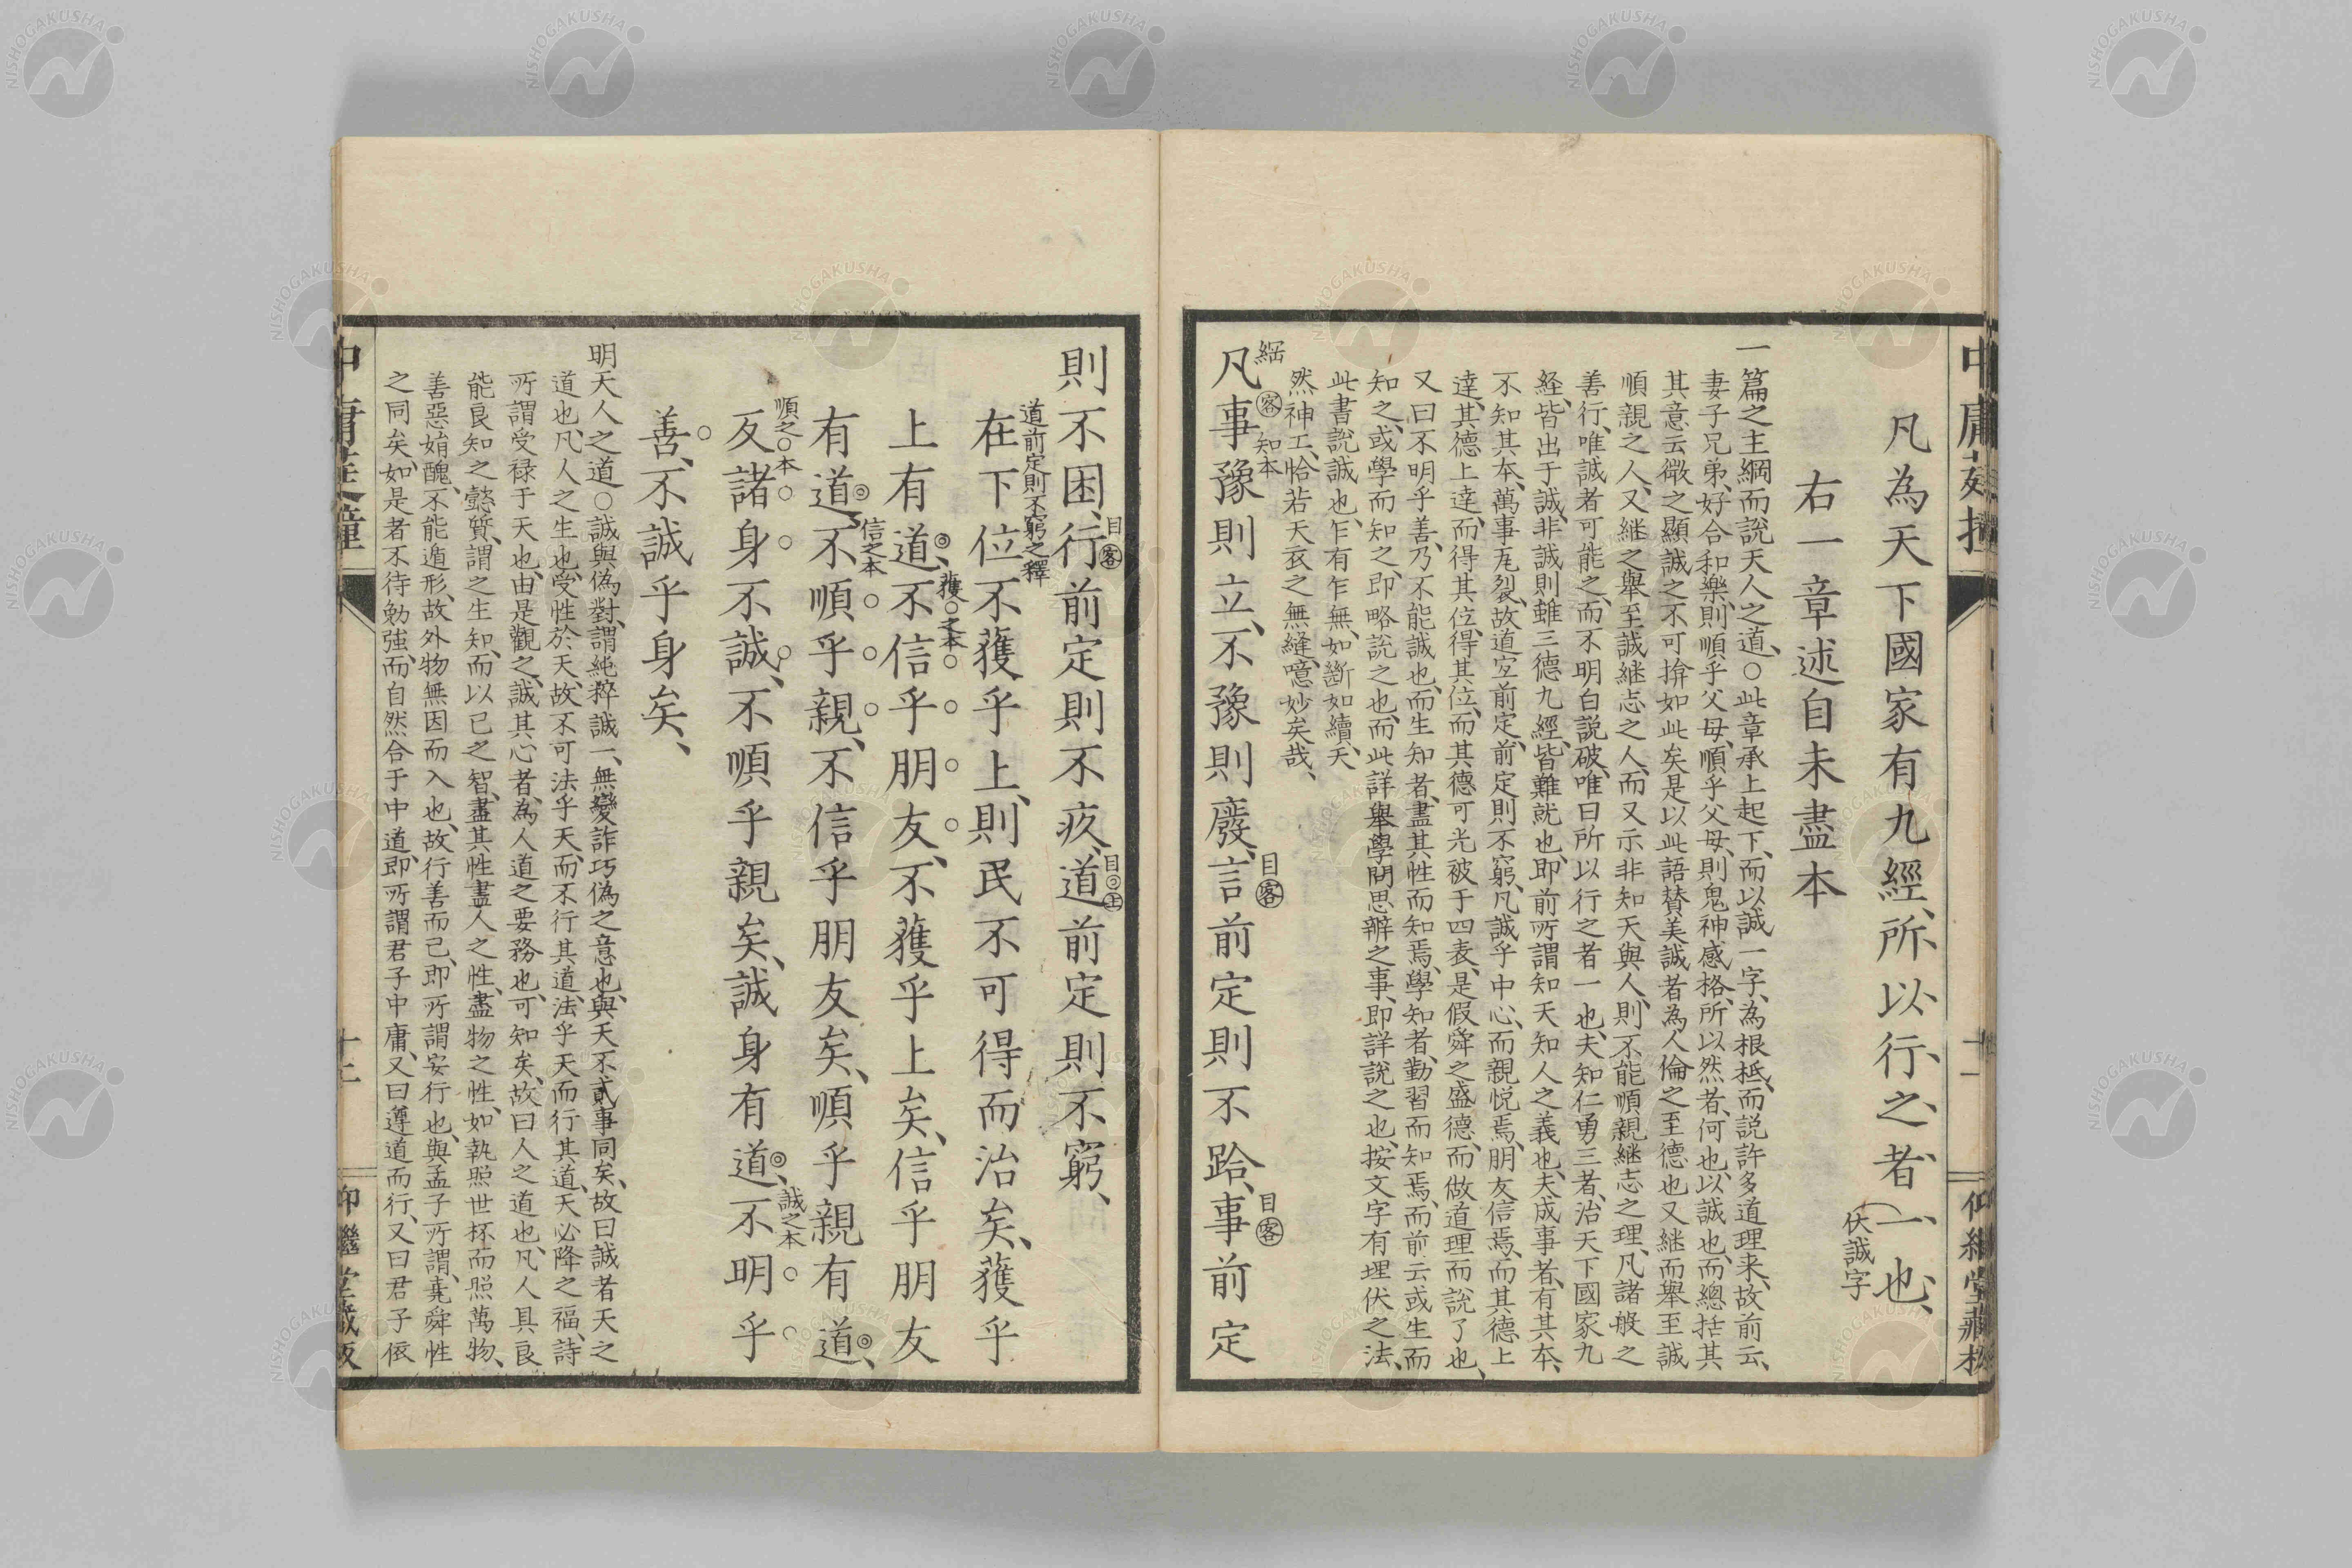 凡為天下國家有九經、所以行之者一也、
伏誠字
右一章述自未盡本
一篇之主綱而說天人之道、○此章承上起下、而以誠一字、為根柢、而説許多道理来、故前云、
妻子兄弟、好合和樂、則順乎父母、順乎父母、則鬼神感格、所以然者、何也、以誠也、而總括其
其意云微之顯誠之不可揜如此矣是以此語賛美誠者為人倫之至德也又継而舉至誠
順親之人、又継之舉至誠継志之人、而又示非知天與人、則不能順親継志之理、凡諸般之
善行、唯誠者可能之、而不明白説破、唯曰所以行之者一也、夫知仁勇三者、治天下國家九
經、皆出于誠、非誠則雖三德九經、皆難就也、即前所謂知天知人之義也、夫成事者、有其本、
不知其本、萬事瓦裂、故道宜前定、前定則不窮、凡誠乎中心、而親悦焉、朋友信焉、而其德上
達、其德上達、而得其位、得其位、而其德可光被于四表、是假舜之盛德、而做道理而說了也、
又曰不明乎善、乃不能誠也、而生知者、盡其性而知焉、學知者、勤習而知焉、而前云或生而
知之、或學而知之、即略説之也、而此詳舉學問思辨之事、即詳説之也、按文字有埋伏之法、
此書說誠也、乍有乍無、如斷如續、天
然神工、恰若天衣之無縫、噫妙矣哉、
綱 客 知本 目客 目客
凡事豫則立、不豫則廢、言前定則不跲、事前定
目客 目◎主
則不困、行前定則不疚、道前定則不窮、
道前定則不窮之釋
在下位不獲乎上、則民不可得而治矣、獲乎
獲○之本
上有道、不信乎朋友、不獲乎上矣、信乎朋友
信之本
有道、不順乎親、不信乎朋友矣、順乎親有道、
順之○本 誠之本
反諸身不誠、不順乎親矣、誠身有道、不明乎
善、不誠乎身矣、
明天人之道○誠與偽對、謂純粹誠一、無變詐巧偽之意也、與天不貳事同矣、故曰誠者天之
道也、凡人之生也、受性於天、故不可法乎天、而不行其道、法乎天而行其道、天必降之福、詩
所謂受禄于天也、由是觀之、誠其心者、為人道之要務也、可知矣、故曰人之道也、凡人具良
能良知之懿質、謂之生知、而以已之智、盡其性盡人之性、盡物之性、如執照世杯而照萬物、
善惡姢醜、不能遁形、故外物無因而入也、故行善而已、即所謂安行也、與孟子所謂、堯舜性
之同矣、如是者不待勉強、而自然合于中道、即所謂君子中庸、又曰遵道而行、又曰君子依